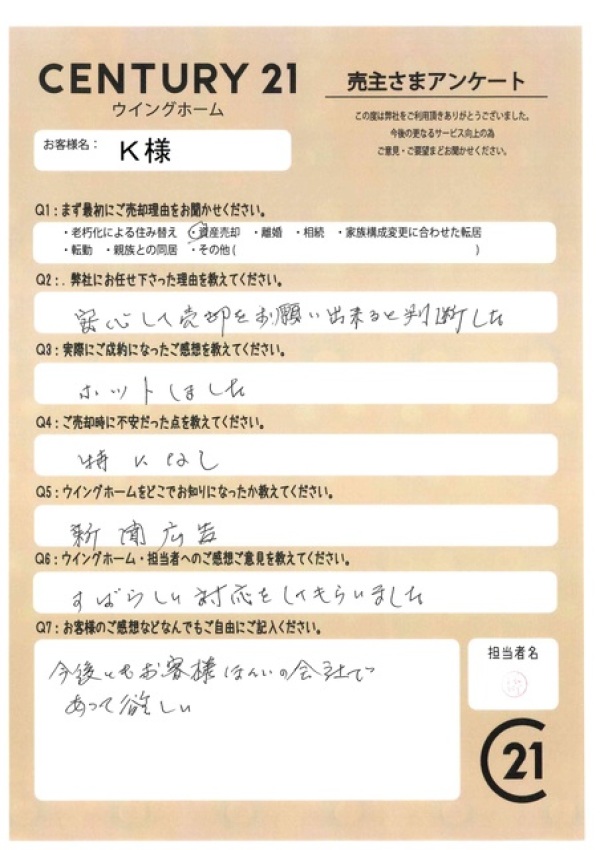 CENTURY 21
ウイングホーム
売主さまアンケート
この度は弊社をご利用頂きありがとうございました。
今後の更なるサービス向上の為
ご意見・ご要望をお聞かせください。
お客様名： K様
Q1：まず最初にご売却理由をお聞かせください。
・老朽化による住み替え ・資産売却 ・離婚 ・相続 ・家族構成変更に合わせた転居
・転勤 ・親族との同居 ・その他( )
Q2：. 弊社にお任せ下さった理由を教えてください。
安心して売却をお願い出来ると判断した
Q3：実際にご成約になったご感想を教えてください。
ホットしました
Q4：ご売却時に不安だった点を教えてください。
特になし
Q5：ウイングホームをどこでお知りになったか教えてください。
新聞広告
Q6：ウイングホーム・担当者へのご感想ご意見を教えてください。
すばらしい対応をしてもらいました
Q7：お客様のご感想などなんでもご自由にご記入ください。
今後ともお客様ほんいの会社で
あって欲しい
担当者名
C21